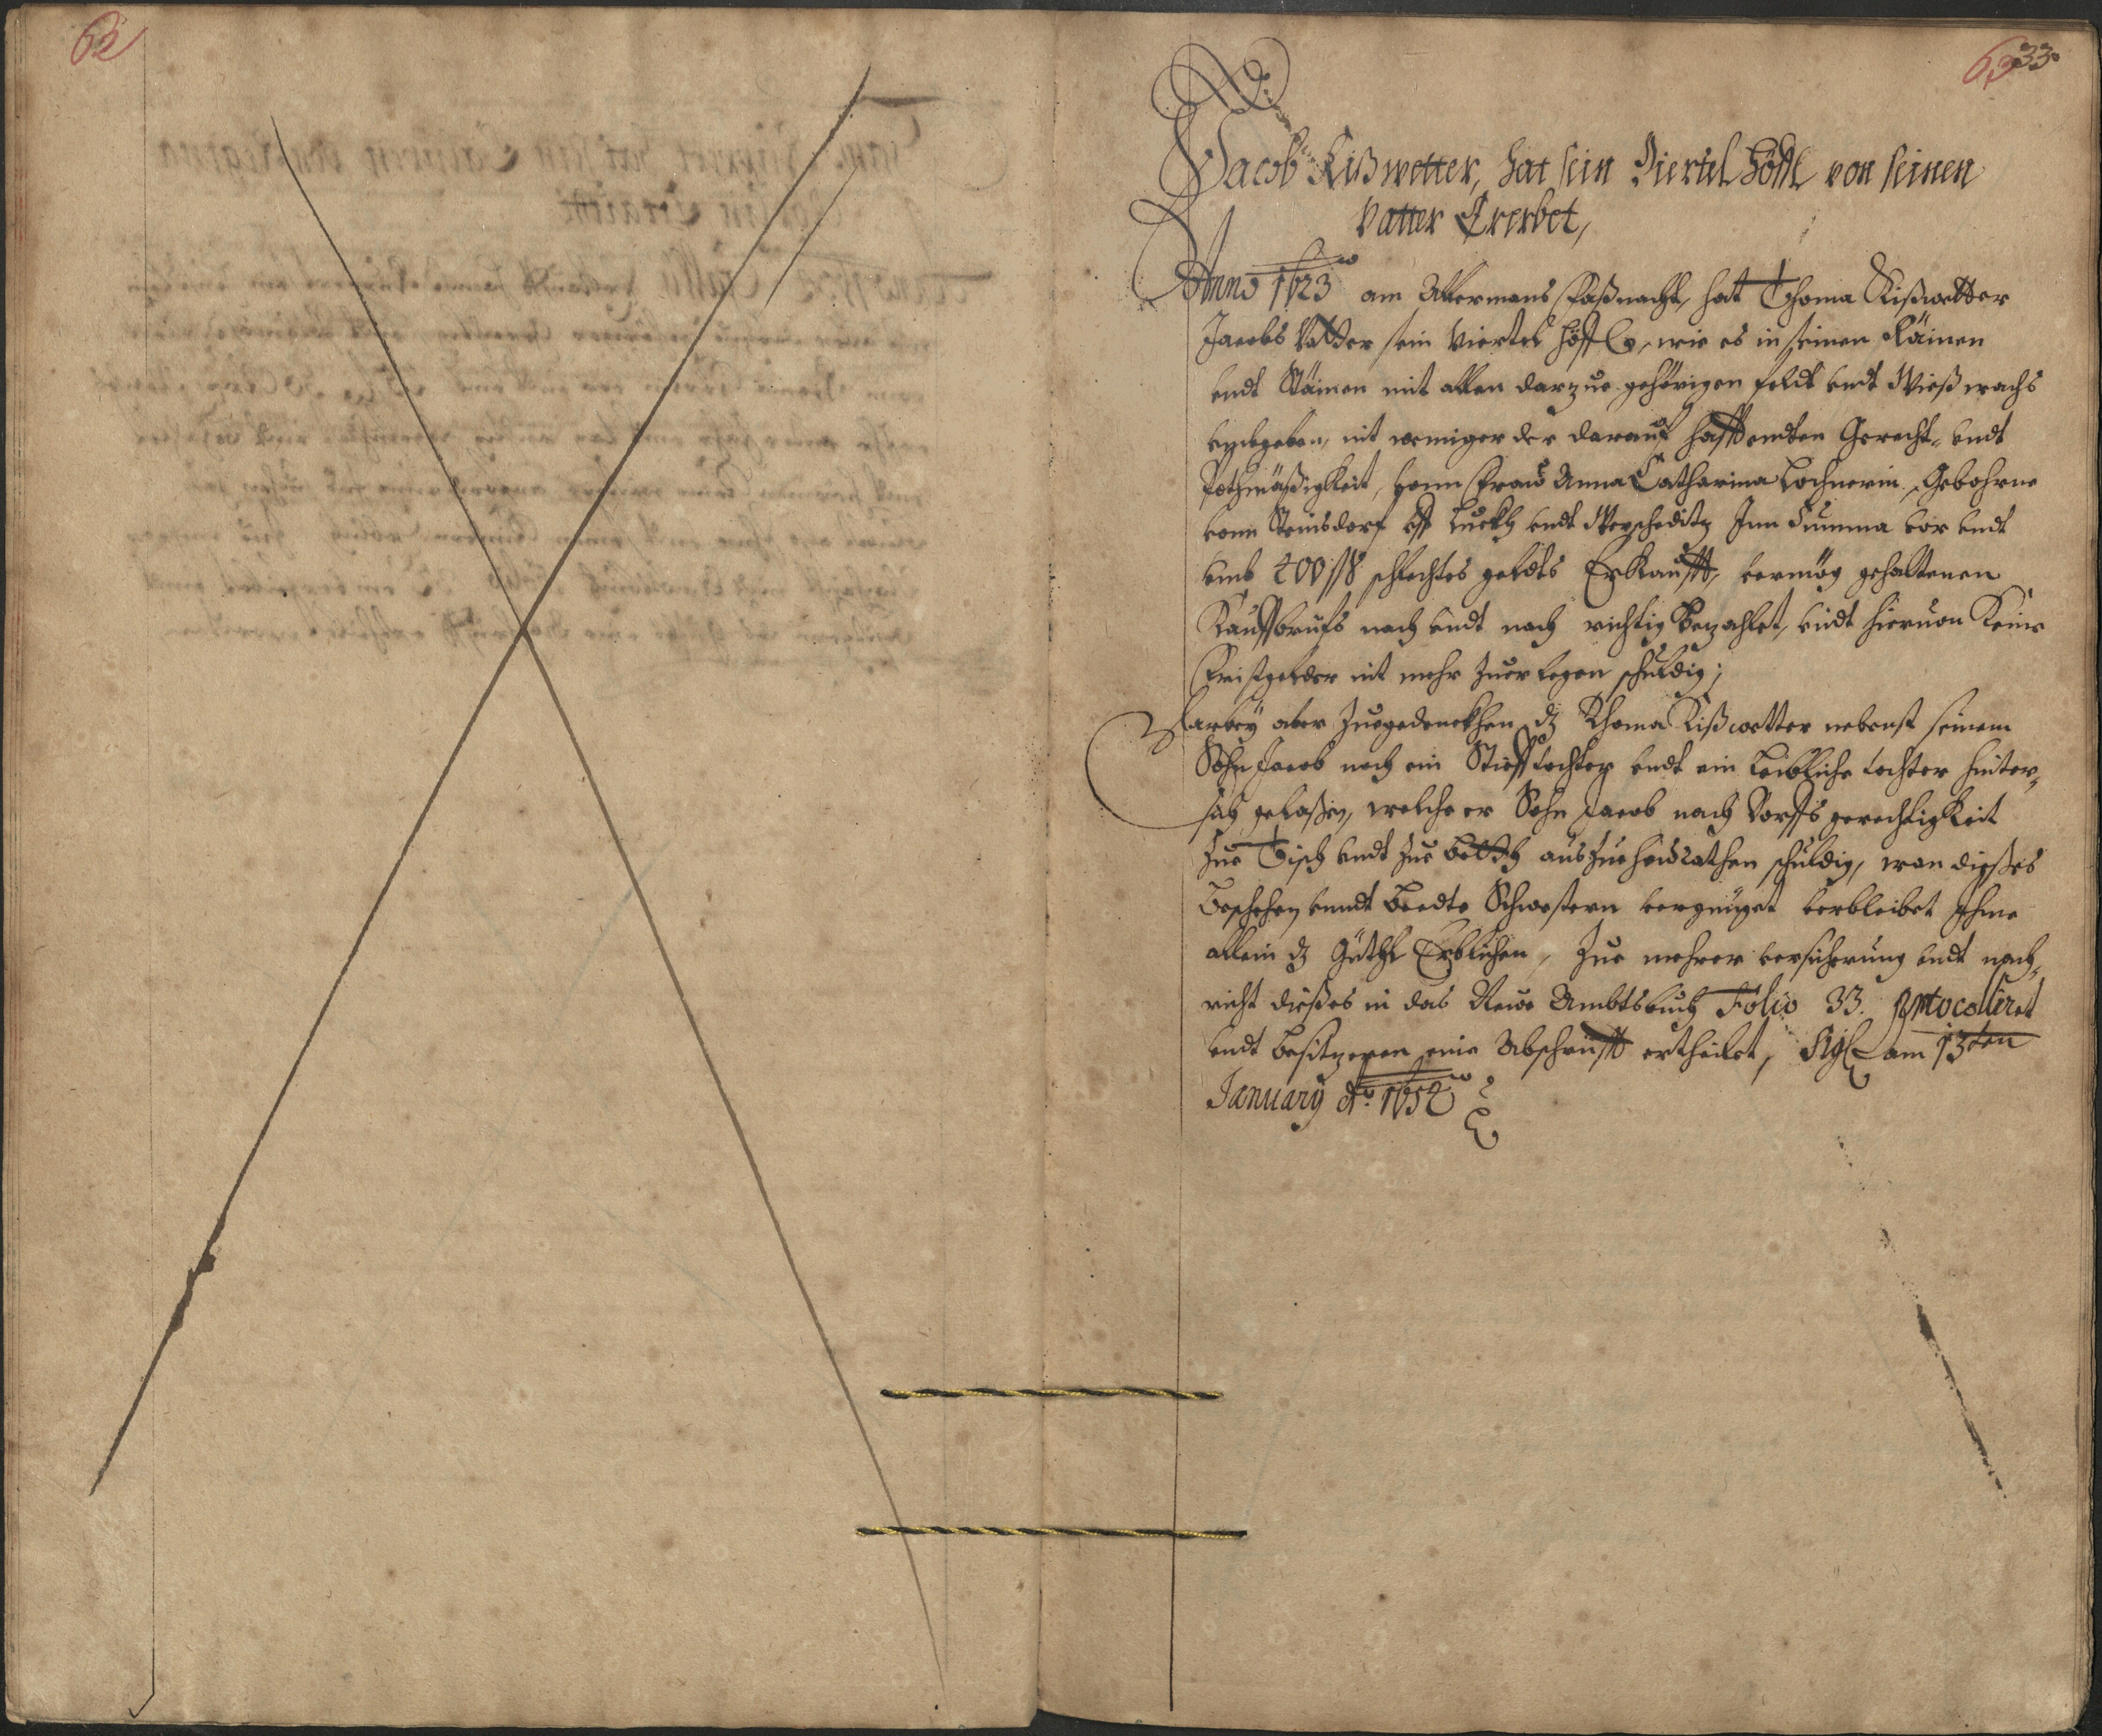 62
63 33.
Jacob Kißwetter, hat sein Viertel Höffl von seinen
Vatter Ererbet,
Anno 1623 am Allermans Faßnacht, hat Thoma Kißwetter
Jacobs Vatter sein Viertel Höffl, wie es in seinen Räinen
vndt Stäinen mit allen darzue gehörigen feldt vndt Wießwachs
nit weniger der darauf hafftendten Gerecht- vndt
Pothmäßigkeit, Fraw Anna Catharina Lochnerin, Gebohrne
vonn Steinsdorf vff vndt Inn Summa vor vndt
vmb 200 schlechtes geldts Erkaufft, vermög gehaltenen
Kauffbriefs nach vndt nach richtig Bezahlet, vndt hieruon Keine
Fristgelder nit mehr Zuerlegen schuldig;
Darbey aber Zuegedenckhen dz Thoma Kißwetter nebenst seinem
Sohn Jacob noch ein Stieff tochter vndt ein Leibliche tochter hinter-
sich gelaßen, welche er Sohn Jacob nach Dorffs gerechtigkeit
Zue Tisch vndt Zue Betth aus Zue heürathen schuldig, wan dießes
Beschehen vnndt Beedte Schwestern vergnüget verbleibet Ihme
allein dz Güthl Erblichen, Zue mehrer versicherung vndt nach-
richt dießes in das Newe Ambtsbuch Folio 33. protocolliret
vndt besitzeren eine Abschrifft ertheilet, Sigl am 13ten
January Ao. 1652